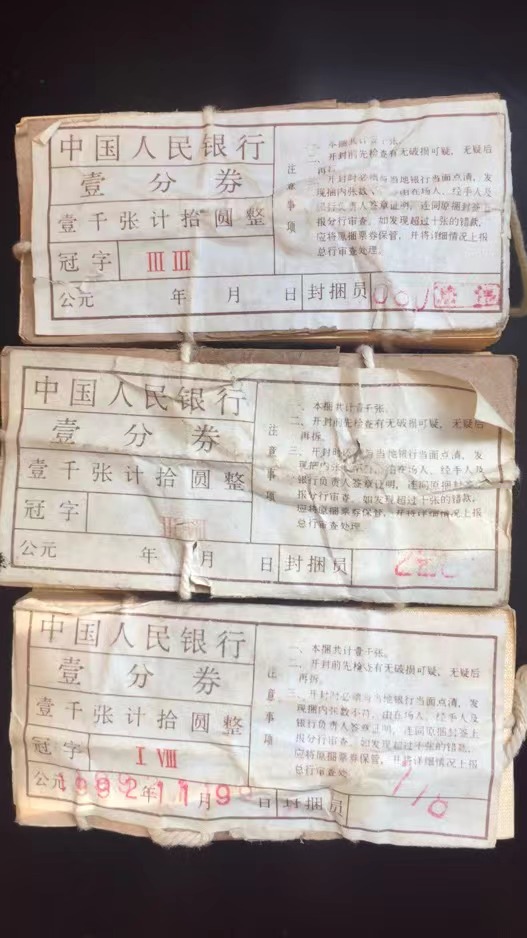 中国人民银行
壹分券
壹千张计拾圆整
冠字 III III
公元 年 月 日 封捆员
注意事项
一、本捆共计壹千张。
二、开封前先检查有无破损可疑，无疑后
再拆。
三、开封时必须与当地银行当面点清，发
现捆内张数 由在场人、经手人及
银行负责人签章证明，连同原捆封签上
报分行审查。如发现超过十张的错款，
应将原捆票券保管，并将详细情况上报
总行审查处理。
中国人民银行
壹分券
壹千张计拾圆整
冠字
公元 年 月 日 封捆员
注意事项
一、本捆共计壹千张。
二、开封前先检查有无破损可疑，无疑后
再拆。
三、开封时必须与当地银行当面点清，发
现捆内张 由在场人、经手人及
银行负责人签章证明，连同原捆封签上
报分行审查。如发现超过十张的错款，
应将原捆票券保管，并将详细情况上报
总行审查处理。
中国人民银行
壹分券
壹千张计拾圆整
冠字 I VIII
公元1992年11月9日 封捆员 116
注意事项
一、本捆共计壹千张。
二、开封前先检查有无破损可疑，无疑后
再拆。
三、开封时必须与当地银行当面点清，发
现捆内张数不符，由在场人、经手人及
银行负责人签章证明，连同原捆封签上
报分行审查。如发现超过十张的错款，
应将原捆票券保管，并将详细情况上报
总行审查处